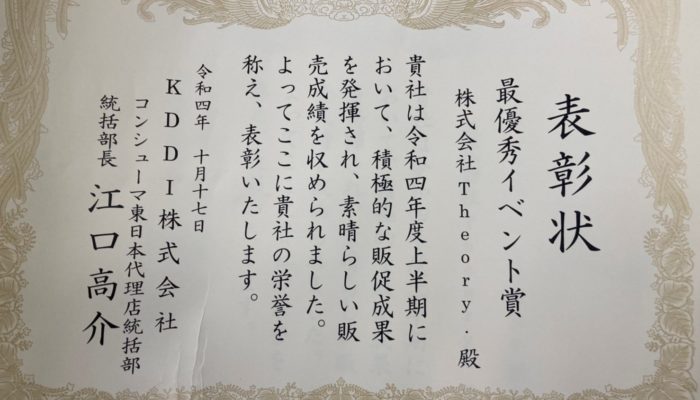 表彰状
最優秀イベント賞
株式会社Theory.殿
貴社は令和四年度上半期に
おいて、積極的な販促成果
を発揮され、素晴らしい販
売成績を収められました。
よってここに貴社の栄誉を
称え、表彰いたします。
令和四年 十月十七日
KDDI株式会社
コンシューマ東日本代理店統括部
統括部長 江口高介